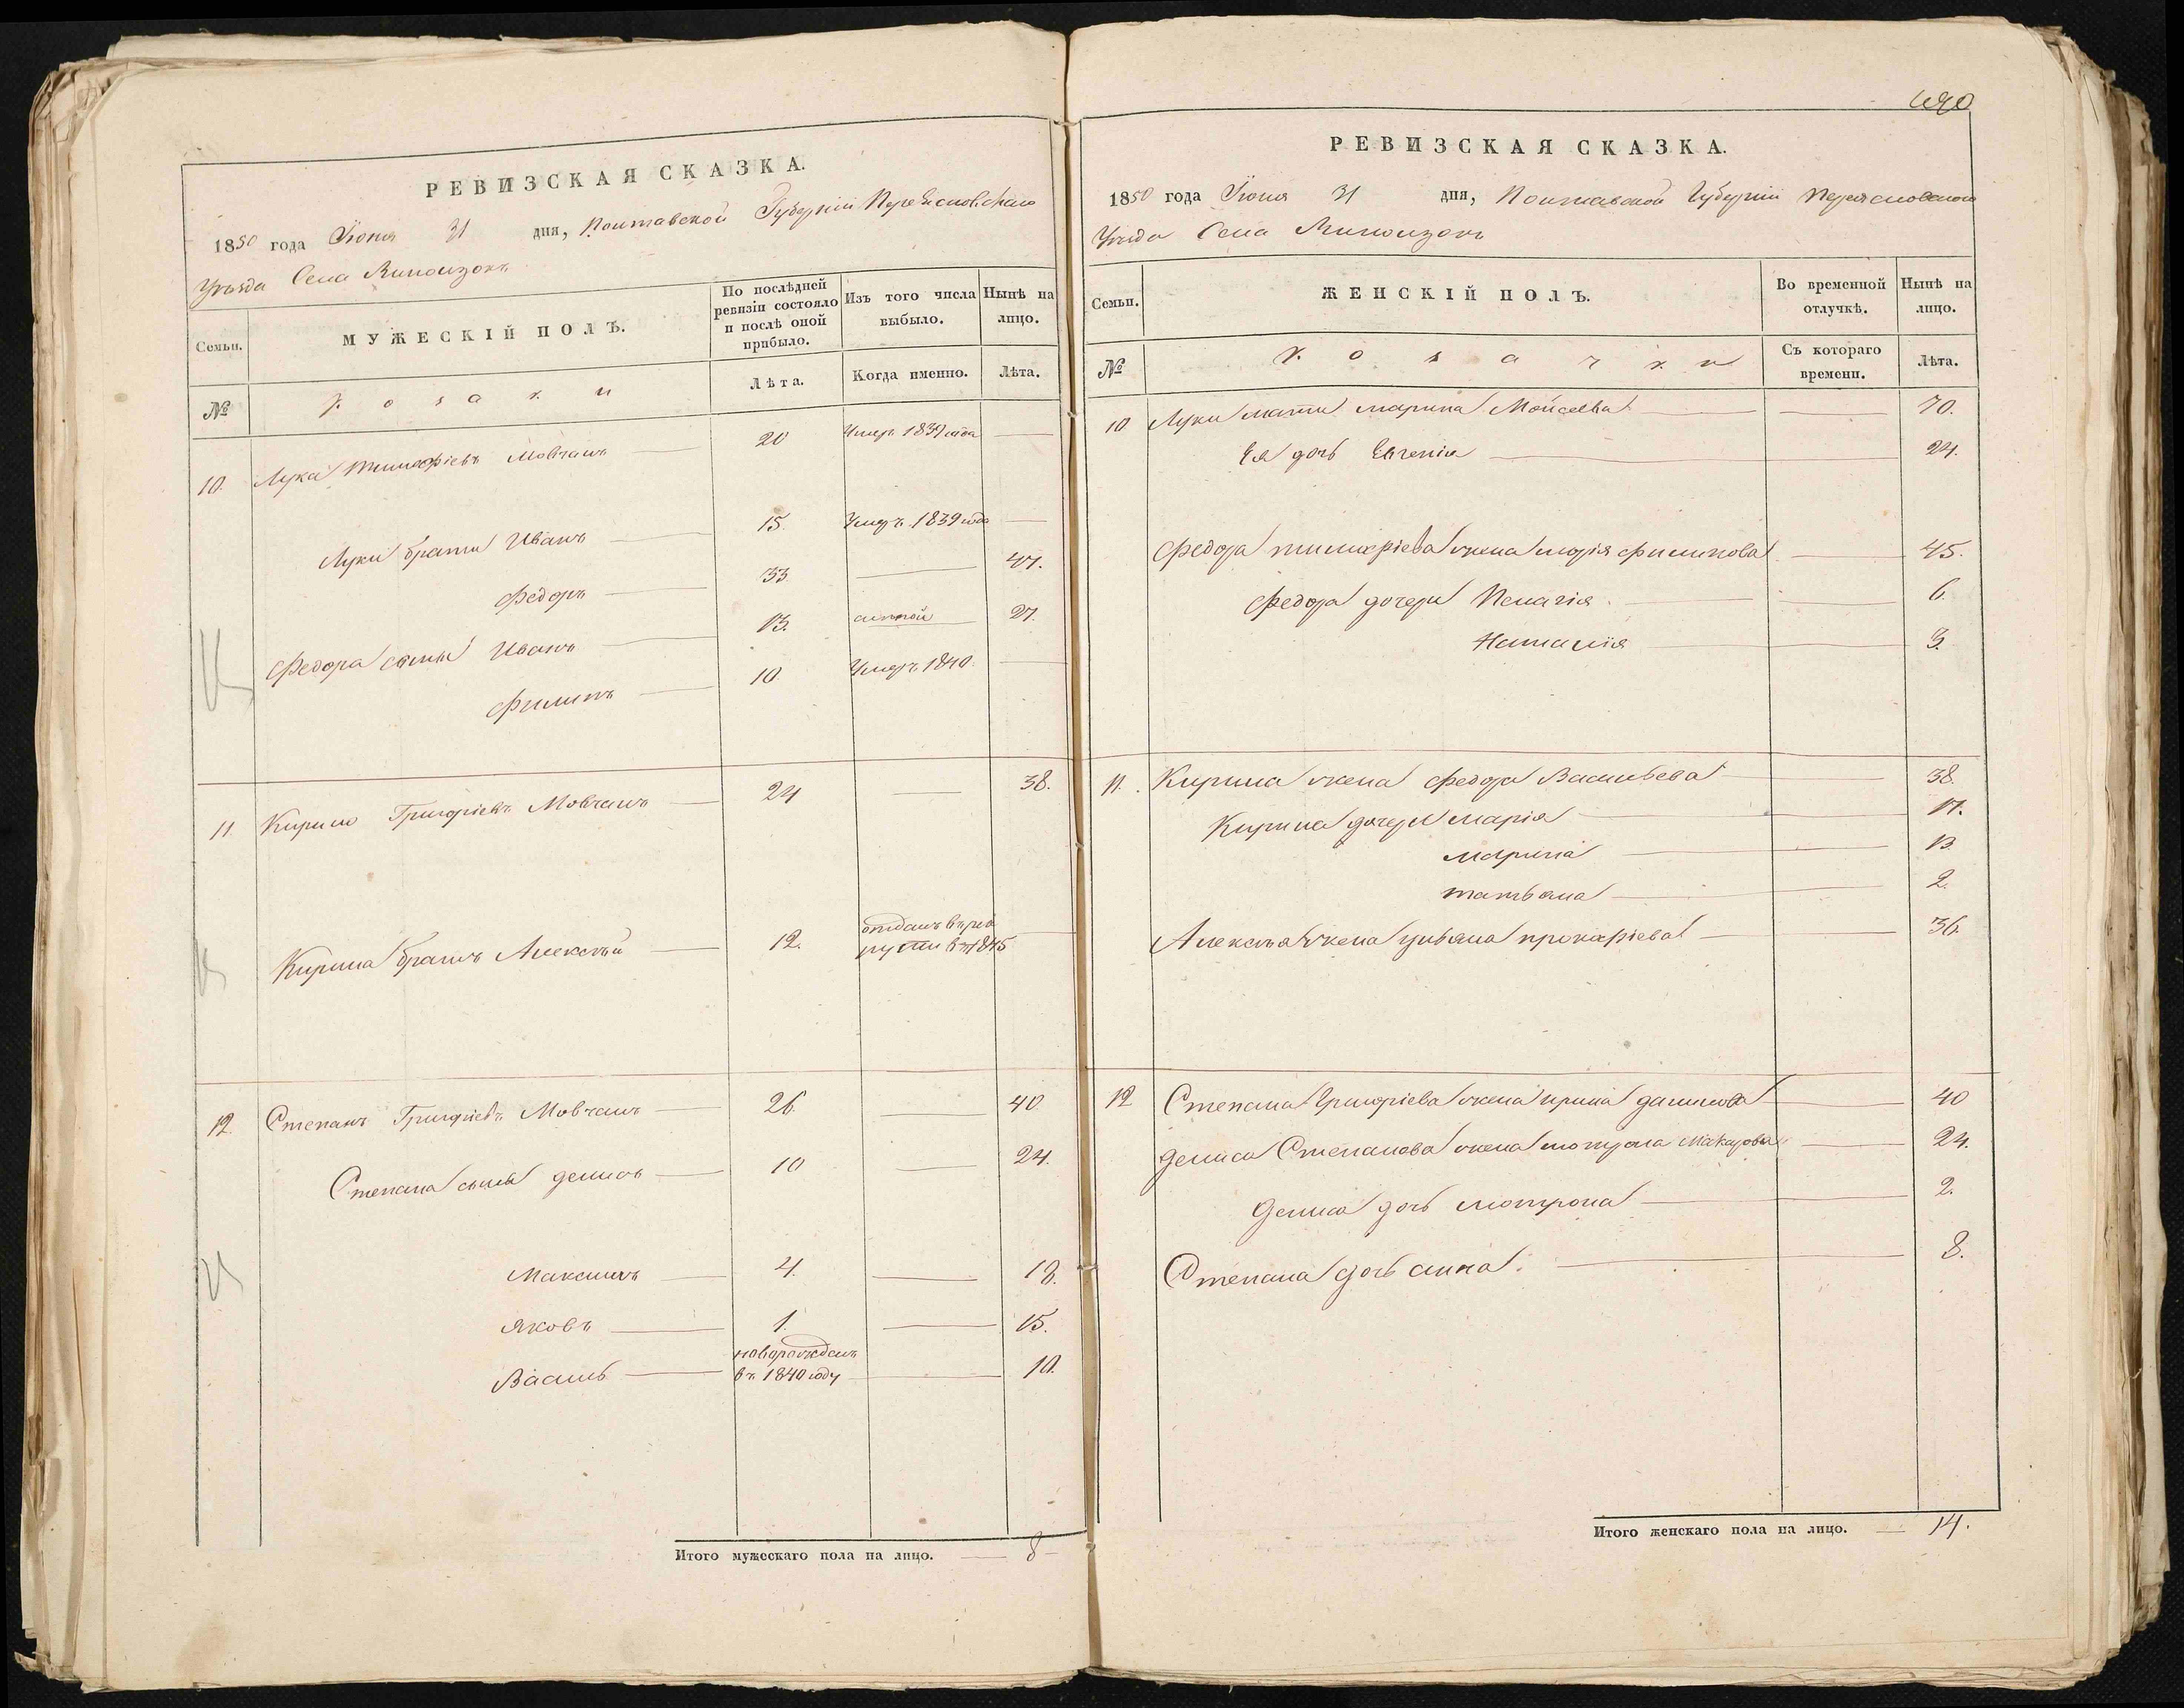 РЕВИЗСКАЯ СКАЗКА.
1850 года Іюня 31 дня, Полтавской Губерніи Переяславскаго
Уѣзда Села Липлявъ
Семьи. МУЖЕСКІЙ ПОЛЪ. По послѣдней ревизіи состояло и послѣ оной прибыло. Изъ того числа выбыло. Нынѣ на лицо.
№ Козаки Лѣта. Когда именно. Лѣта.
10. Лука Тимофіевъ Мовчанъ — 20 Умер. 1839 года —
Луки братья Иванъ — 15. Умеръ 1839 года —
Федоръ — 33. — 47.
Федора сыны Иванъ — 13. слѣпой 27.
Филипъ — 10 Умеръ 1840. —
11. Кирило Григоріевъ Мовчанъ — 24 — 38.
Кирила братъ Алексѣй — 12. отданъ въ рек
руты въ 1845 —
12. Степанъ Григоріевъ Мовчанъ — 26. — 40
Степана сыны денисъ — 10 — 24.
Максимъ — 4. — 18.
Яковъ — 1. — 15.
новорожденъ
Василь — въ 1840 году — 10.
Итого мужескаго пола на лицо. — 8 —
690
РЕВИЗСКАЯ СКАЗКА.
1850 года Іюня 31 дня, Полтавской Губерніи Переясловского
Уѣзда Села
Семьи. ЖЕНСКІЙ ПОЛЪ. Во временной отлучкѣ. Нынѣ на лицо.
№ Козачки Съ котораго времени. Лѣта.
10 Луки мати марина Мойсеева — — 70.
Ея дочь Евгенія — — 24.
Федора тимофіева жена марія филипова — 45.
Федора дочери Пелагія — — 6.
Наталия — — 3.
11. Кирила жена федора Васильева — — 38.
Кирила дочери марія — — 17.
марина — — 13.
татьяна — — 2.
Алексѣя жена ульяна прокофіева — — 36.
12 Степана Григоріева жена ирина данилова — 40
дениса Степанова жена мотрона Макарова — 24.
Дениса дочь мотрона — — 2.
Степана дочь анна. — — 8.
Итого женскаго пола на лицо. — 14.